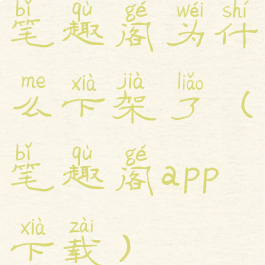 bǐ qù gé wéi shí
笔趣阁为什
me xià jià liǎo
么下架了（
bǐ qù gé
笔趣阁app
xià zài
下载）